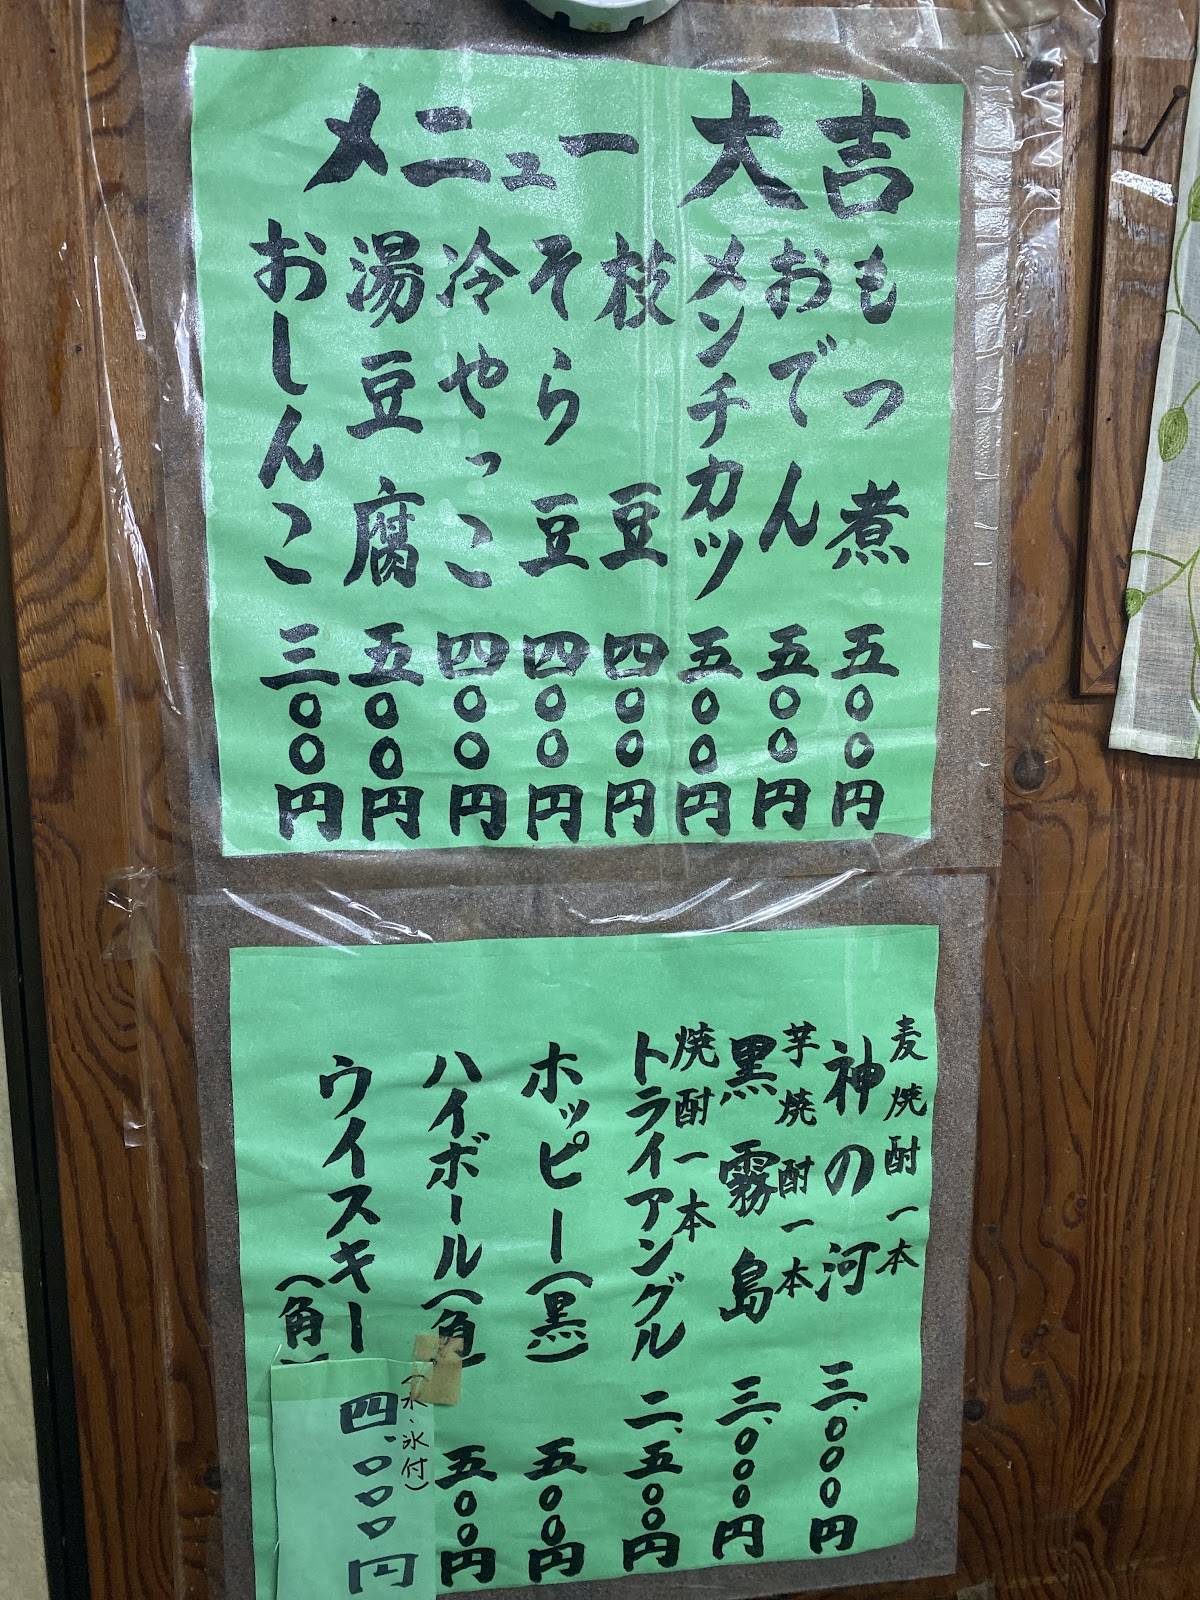 大吉 メニュー
もつ煮 五〇〇円
おでん 五〇〇円
メンチカツ 五〇〇円
枝豆 四〇〇円
そら豆 四〇〇円
冷やっこ 四〇〇円
湯豆腐 五〇〇円
おしんこ 三〇〇円
麦焼酎一本
神の河 三、〇〇〇円
芋焼酎一本
黒霧島 三、〇〇〇円
焼酎一本
トライアングル 二、五〇〇円
ホッピー(黒) 五〇〇円
ハイボール(角) 五〇〇円
(水・氷付)
ウイスキー 四、〇〇〇円
(角)